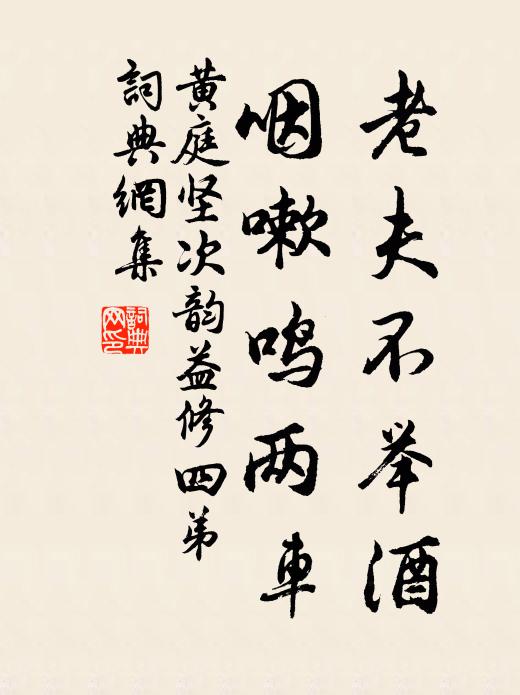 老夫不举酒
咽嗽鸣两車
黄庭坚次韵益修四弟
詞典網集
詞典
网印